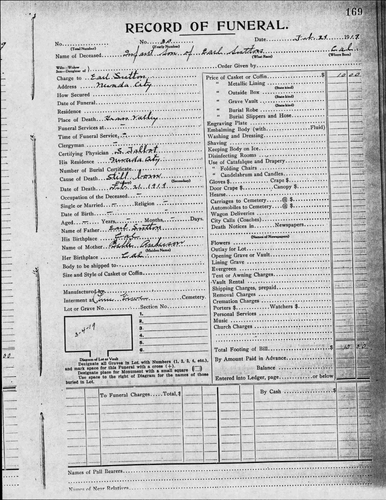 169
RECORD OF FUNERAL.
No. No. 30 Date Feb. 21 1919
(Total Number) (Yearly Number)
Name of Deceased Infant Son of Earl Sutton Cal.
(What Race) (Where Born)
Order Given by
Charge to Earl Sutton
Address Nevada City
How Secured
Date of Funeral
Residence
Place of Death Grass Valley
Funeral Services at
Time of Funeral Service
Clergyman
Certifying Physician
His Residence Nevada City
Number of Burial Certificate
Cause of Death Still born
Date of Death Feb. 21 1919
Occupation of the Deceased
Single or Married Religion
Date of Birth
Aged Years, Months, Days
Name of Father Earl Sutton
His Birthplace
Name of Mother Anderson
(Maiden Name)
Her Birthplace Cal
Body to be shipped to
Size and Style of Casket or Coffin
Manufactured by
Interment at Cemetery.
Lot or Grave No. Section No.
1.
2.
3.
4.
5.
6.
Diagram of Lot or Vault
Designate all Graves in Lot with Numbers (1, 2, 3, 4, etc.),
and mark space for this Funeral with a cross (+).
Designate place for Monument with a small square
Use space to the right of Diagram for the names of those
buried in Lot.
Price of Casket or Coffin $ 10 00
" Metallic Lining
" Outside Box
" Grave Vault
" Burial Robe
(State Kind)
Burial Slippers and Hose
Engraving Plate
Embalming Body (with Fluid)
Washing and Dressing
Shaving
Keeping Body on Ice
Disinfecting Rooms
Use of Catafalque and Drapery
" Folding Chairs
" Candelabrum and Candles
Gloves $ Crape $
Door Crape $ Hearse $
Carriages to Cemetery @ $
Automobiles to Cemetery @ $
Wagon Deliveries
City Calls (Coaches)
Death Notices in Newspapers
(Names of Newspapers)
Flowers
Outlay for Lot
Opening Grave or Vault
Lining Grave
Evergreen
Tent or Awning Charges
Vault Rental
Shipping Charges, prepaid
Removal Charges
Cremation Charges
Porters $ Watchers $
Personal Services
Music
Church Charges
Total Footing of Bill $ 10 00
By Amount Paid in Advance
Balance
Entered into Ledger, page or below
To Funeral Charges By Cash
Names of Pall Bearers
Names of Near Relations